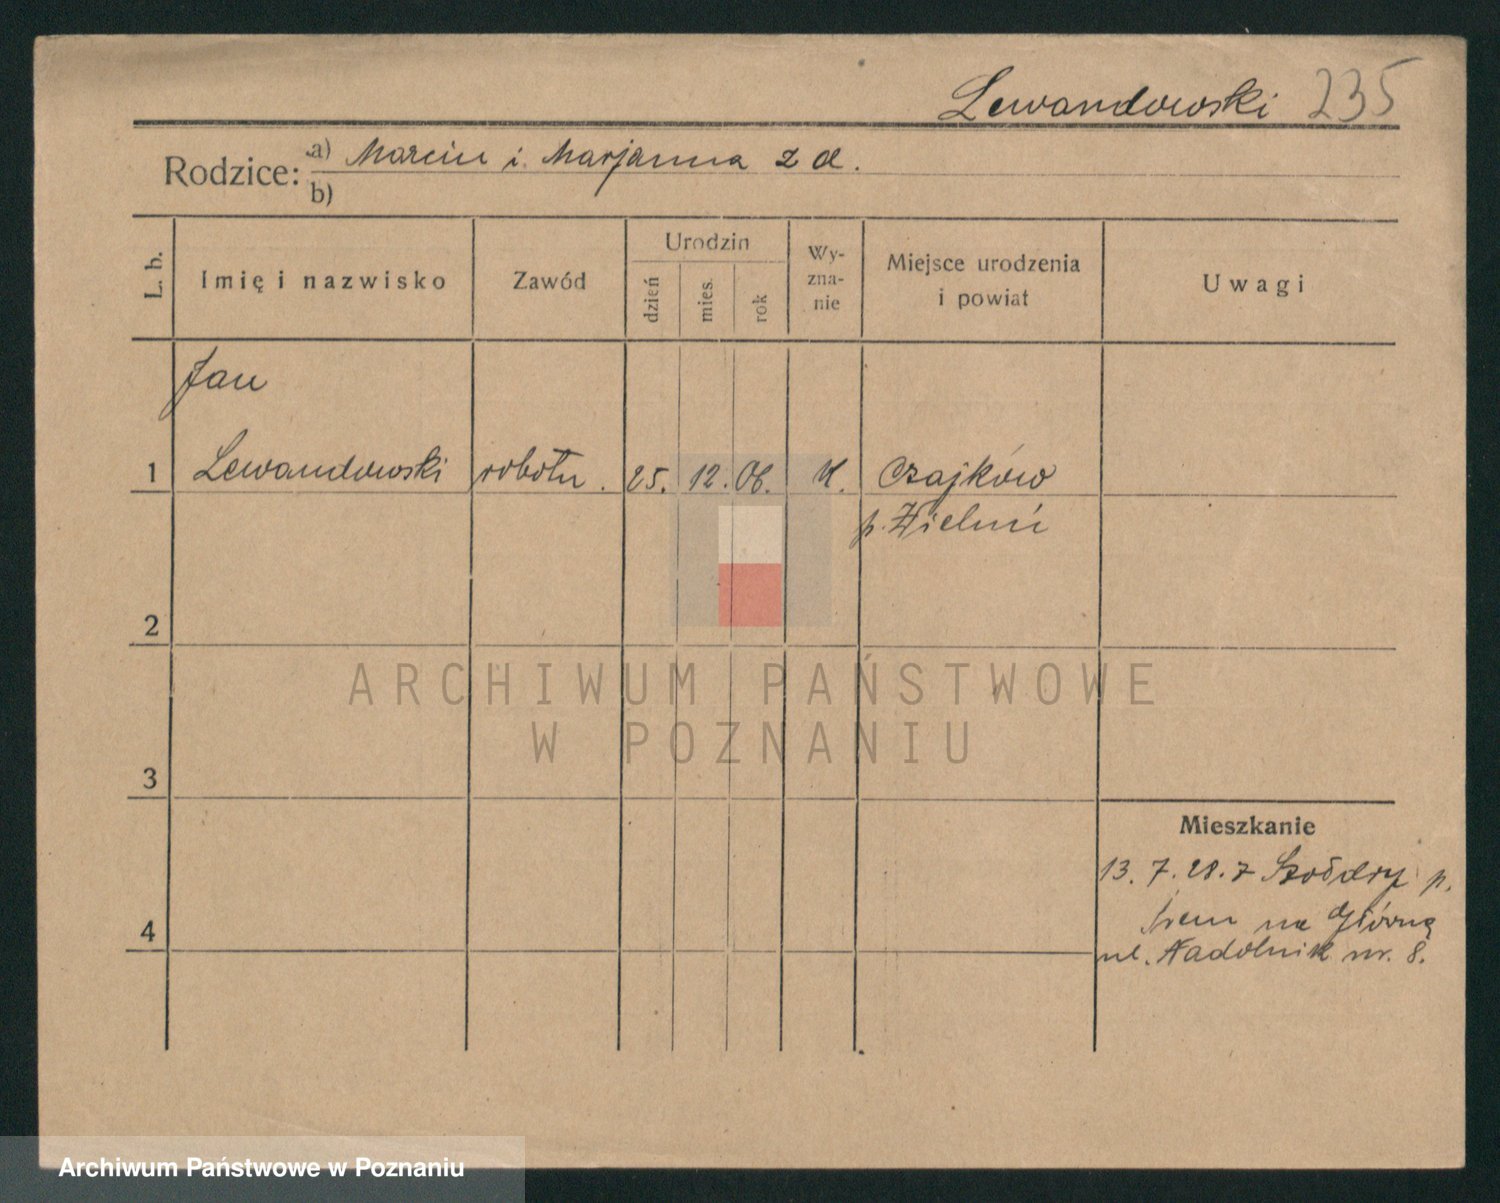 Lewandowski 235
Rodzice: a) Marcin i Marjanna z d.
b)
L. b.
Imię i nazwisko
Zawód
Urodzin
dzień
mies.
rok
Wy-
zna-
nie
Miejsce urodzenia
i powiat
Uwagi
Jan
1 Lewandowski robotn. 25. 12. 06. K. Czajków
p. Wieluń
2
3
4
Mieszkanie
13. 7. 28. z Szołdry p.
Śrem na Główną
ul. Nadolnik nr. 8.
ARCHIWUM PAŃSTWOWE
W POZNANIU
Archiwum Państwowe w Poznaniu